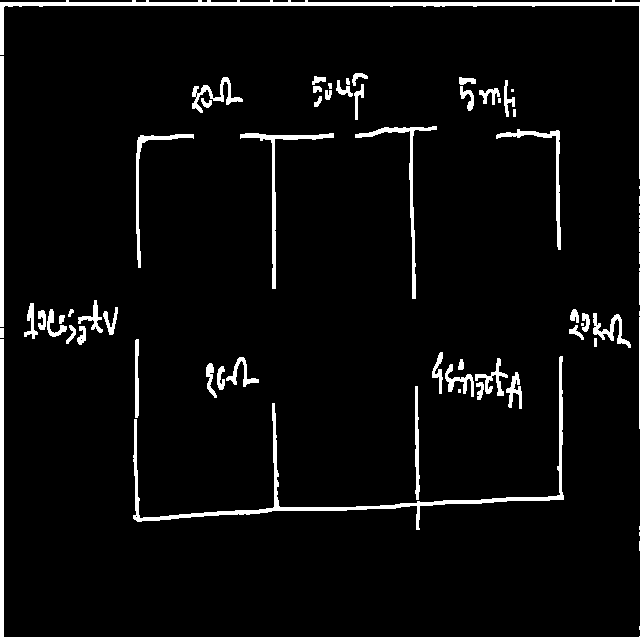 20Ω
50uF
5mH
10cos5tV
20Ω
4sin50tA
20kΩ